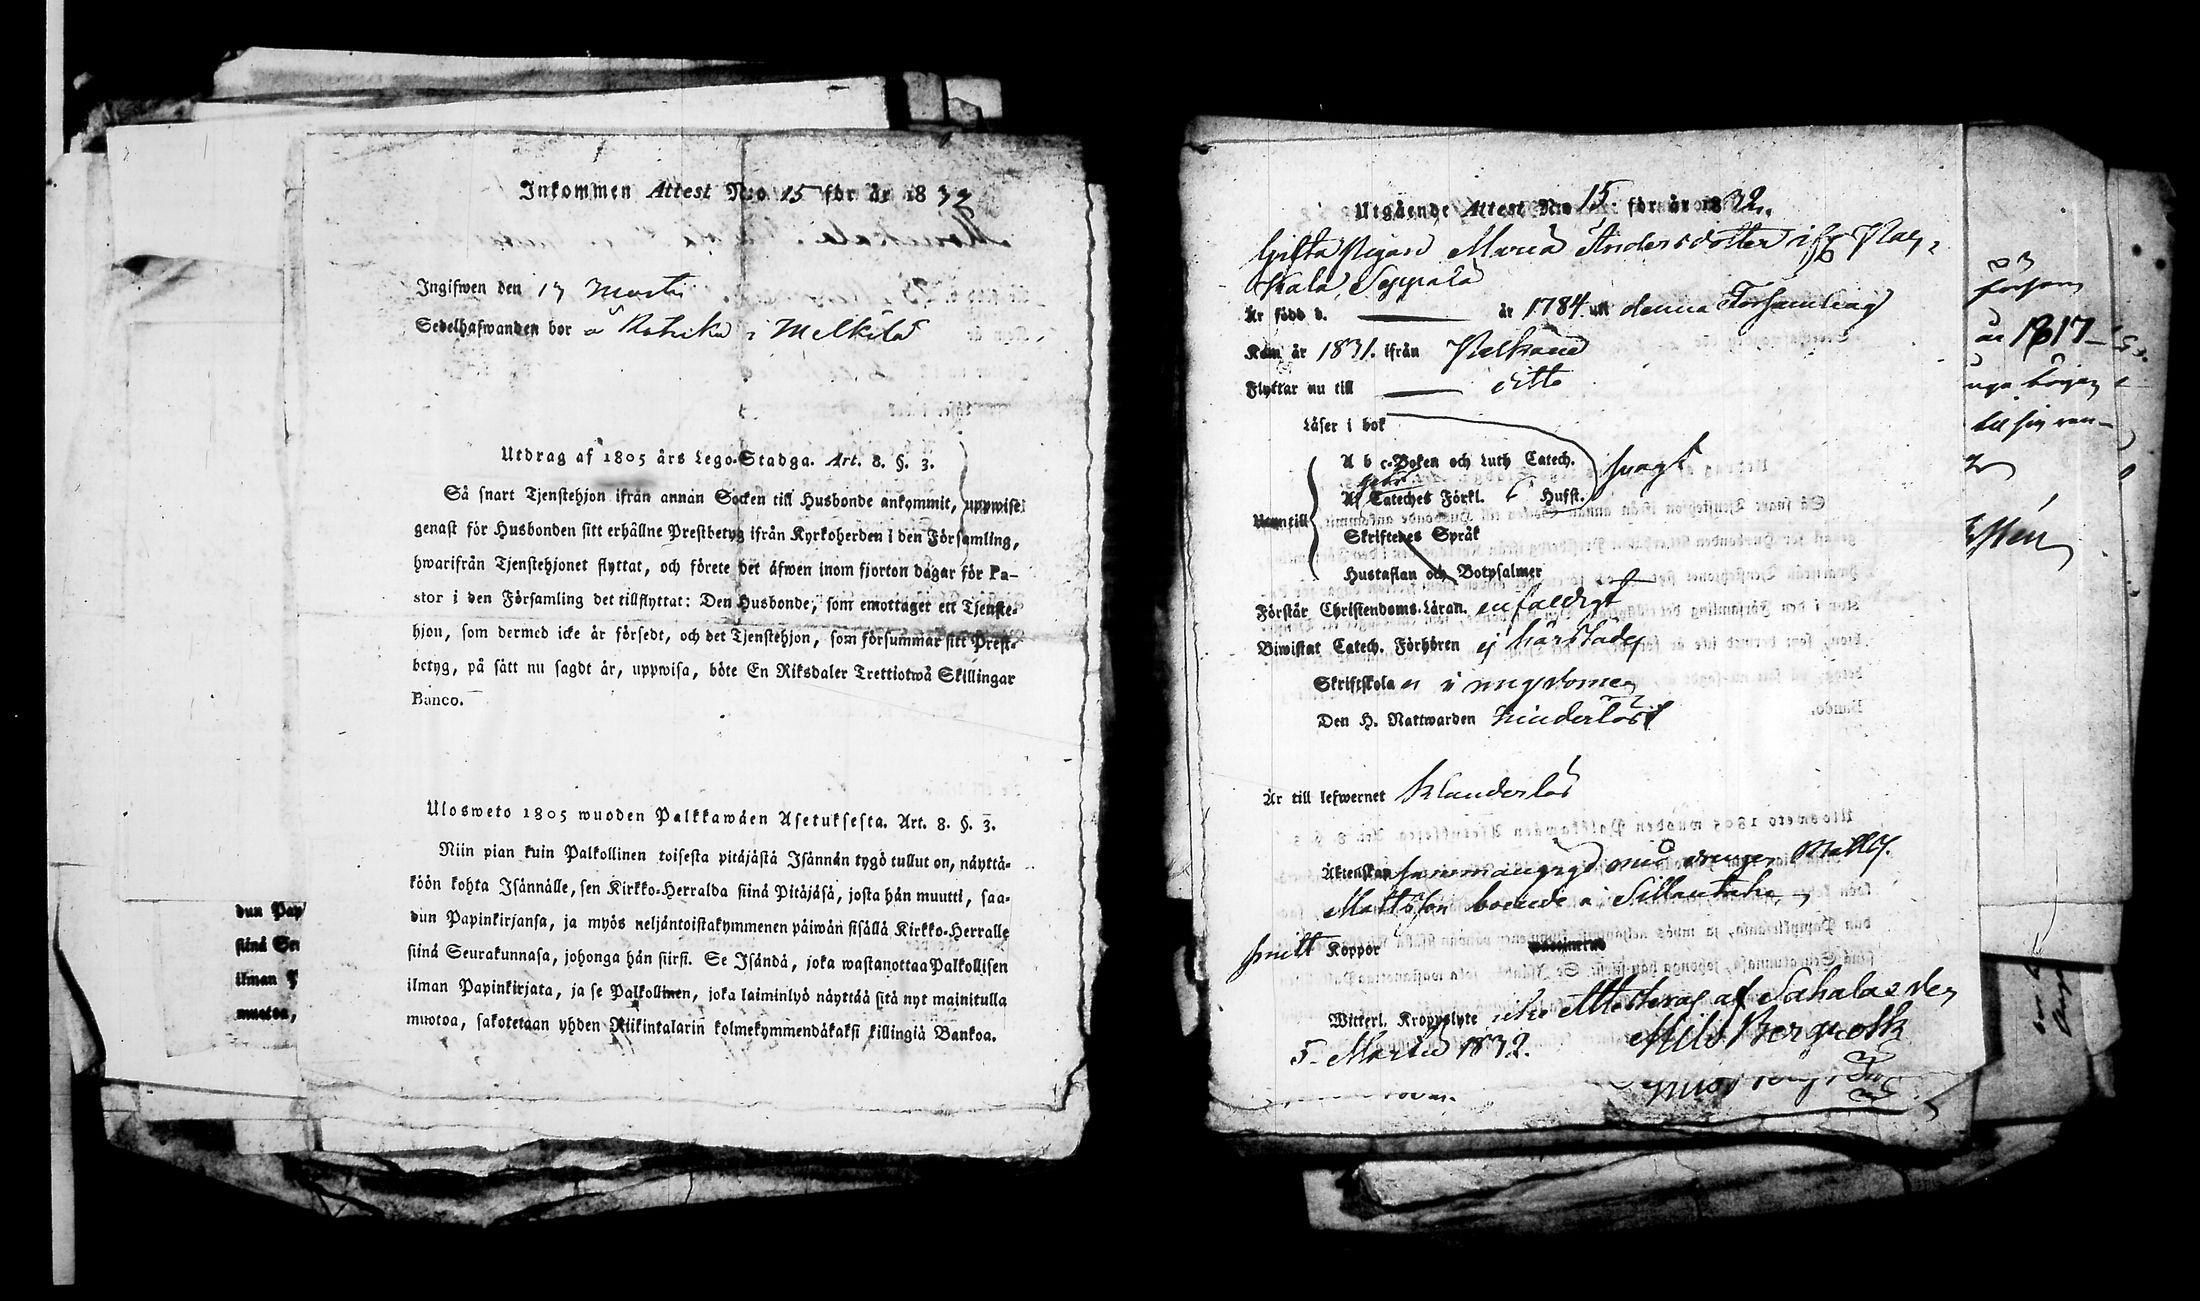 Inkommen Attest N:o 15 för år 1832
Ingifwen den 17 Martii
Sedelhafwanden bor å Rotrika i Mälkilä
Utdrag af 1805 års Lego-Stadga. Art. 8. §. 3.
Så snart Tjenstehjon ifrån annan Socken till Husbonde ankommit, uppwise
genast för Husbonden sitt erhållne Prestbetyg ifrån Kyrkoherden i den Församling,
hwarifrån Tjenstehjonet flyttat, och förete det äfwen inom fjorton dagar för Pa-
stor i den Församling det tillflyttat: Den Husbonde, som emottaget ett Tjenste-
hjon, som dermed icke är försedt, och det Tjenstehjon, som försummar sitt Prest-
betyg, på sätt nu sagdt är, uppwisa, böte En Riksdaler Trettiotwå Skillingar
Banco.
Ulosweto 1805 wuoden Palkkawäen Asetuksesta. Art. 8. §. 3.
Niin pian kuin Palkollinen toisesta pitäjästä Isännän tygö tullut on, näyttä-
köön kohta Isännälle, sen Kirkko-Herralda siinä Pitäjäsä, josta hän muutti, saa-
dun Papinkirjansa, ja myös neljäntoistakymmenen päiwän sisällä Kirkko-Herralle
siinä Seurakunnasa, johonga hän siirsi. Se Isändä, joka wastanottaa Palkollisen
ilman Papinkirjata, ja se Palkollinen, joka laiminlyö näyttää sitä nyt mainitulla
muotoa, sakotetaan yhden Riikintalarin kolmekymmendäkaksi killingiä Bankoa.
dun Pap
siinä Seu
ilman P
muotoa,
Utgående Attest N:o 15. för år 1832.
Gifta Pigan Maria Andersdotter ifr. Pal-
kala, Seppälä
Är född d. — år 1784 uti denna Församling
Kom år 1831. ifrån Pälkäne
Flyttar nu till — ditto
Läser i bok
A b c-Boken och Luth Catech. svagt
Af Cateches Förkl. Husft.
Utantill
Skriftenes Språk
Hustaflan och Botpsalmer
Förstår Christendoms-Läran. enfaldigt
Biwistat Catech. Förhören ej härstädes
Skriftskola i ungdomen
Den H. Nattwarden hinderlöst
Är till lefwernet klanderlös
Äktenskap sammanwigd med drängen Matts
Mattsson boende å
Koppor
Witterl. Kroppslyte icke Attesteras af Sahalax den
5. Martii 1832. Nils Bergroth
försam
år 1817
till sin